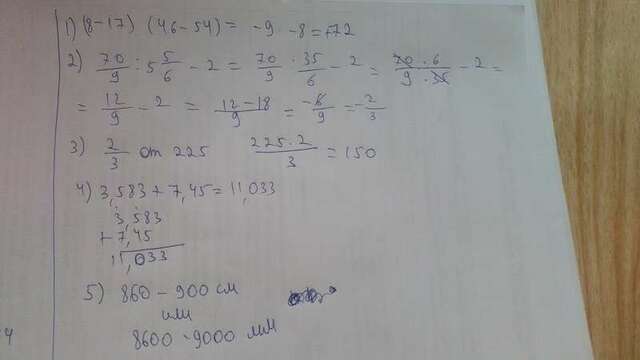 1) (8-17) (46-54) = -9 · -8 = +72
2) 70/9 : 5 5/6 - 2 = 70/9 · 35/6 - 2 = 70·6/9·35 - 2 =
= 12/9 - 2 = 12-18/9 = -6/9 = -2/3
3) 2/3 от 225 225·2/3 = 150
4) 3,583 + 7,45 = 11,033
3,583
+ 7,45
11,033
5) 860 - 900 см
или
8600 - 9000 мм
4